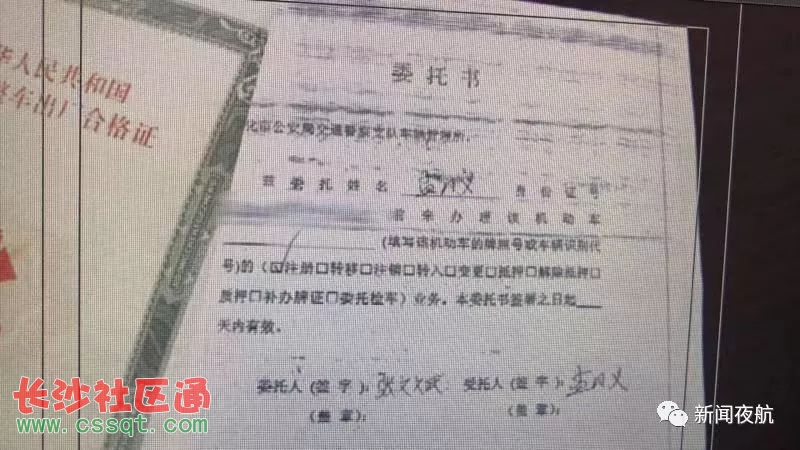 华人民共和国
整车出厂合格证
委托书
化市公安局交通警察支队车辆管理所:
兹委托姓名 身份证号
前来办理该机动车
(填写该机动车的牌照号或车辆识别代
号)的（☑注册□转移□注销□转入□变更□抵押□解除抵押□
质押□补办牌证□委托检车）业务。本委托书签署之日起____
天内有效。
委托人(签字): 受托人(签字):
(盖章): (盖章):
长沙社区通
www.cssqt.com
新闻夜航